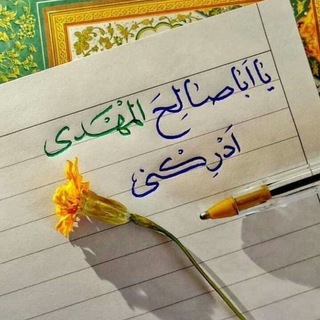 یا اَباصالِحَ المَهْدی
اَدْرِکْنی